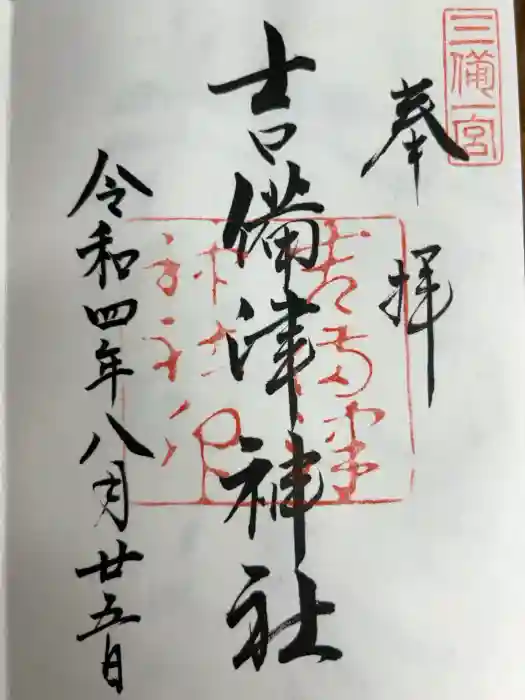 三備一宮
奉拝
吉備津神社
令和四年八月廿五日